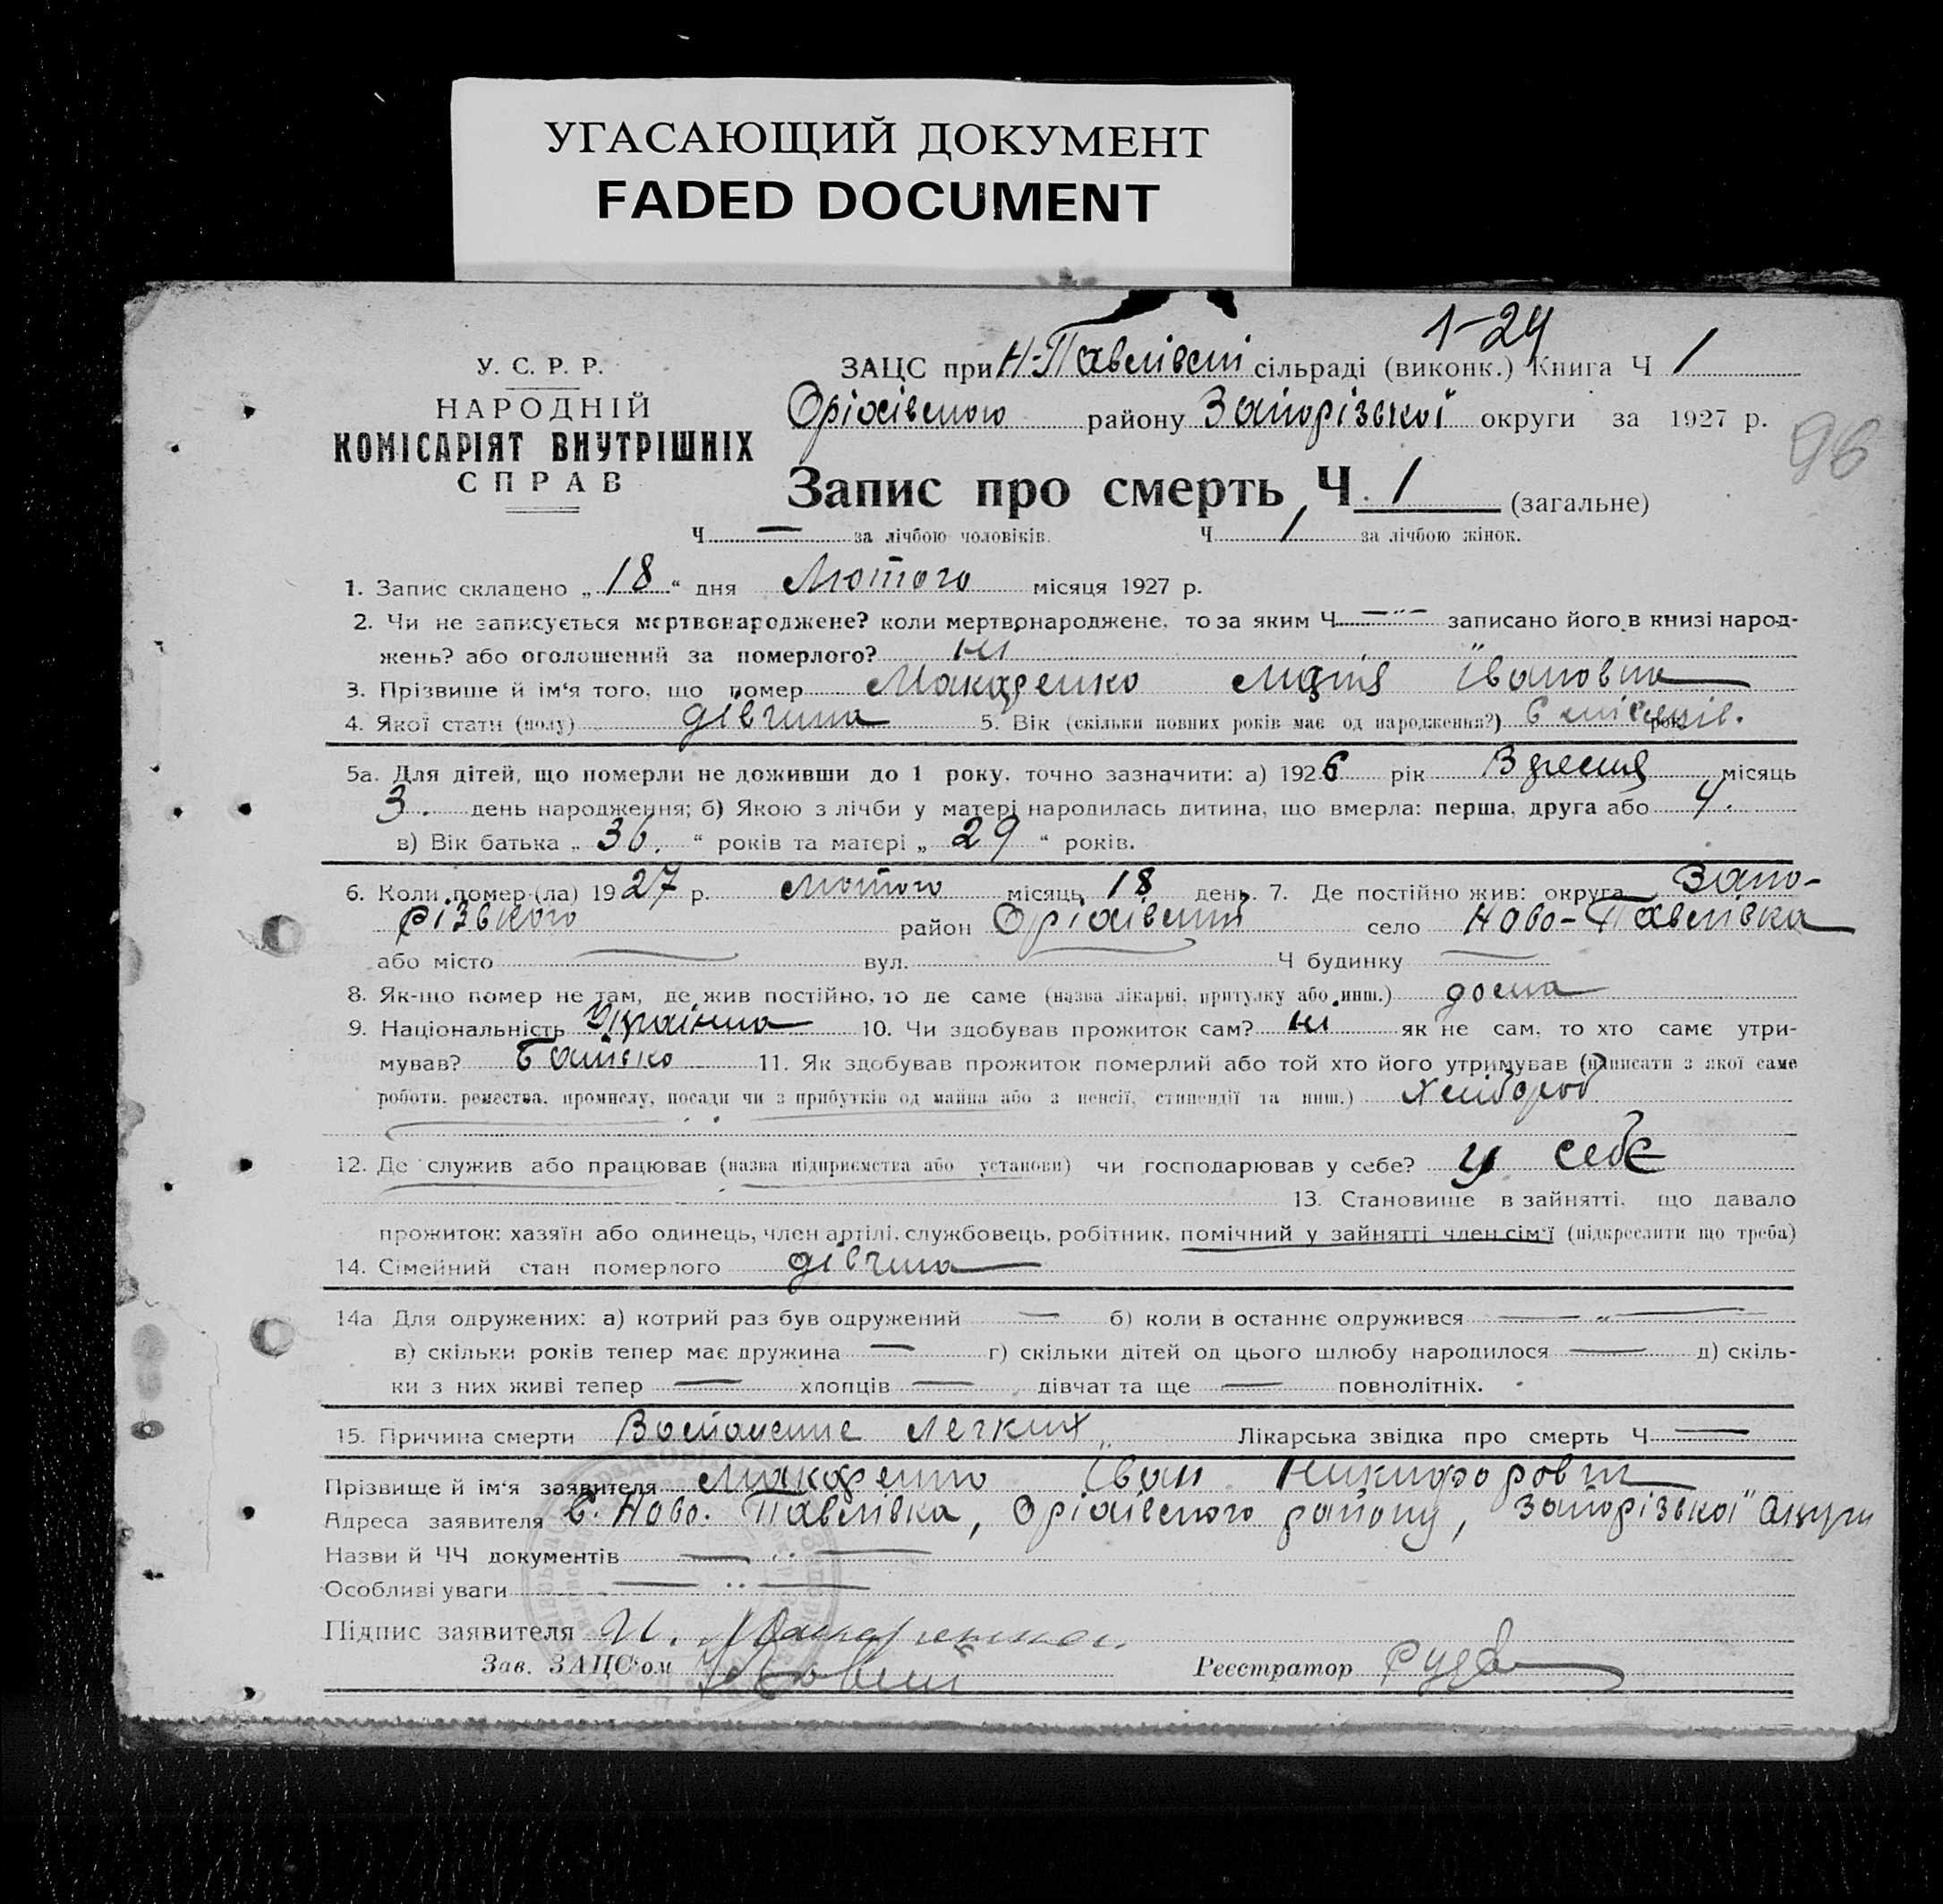 УГАСАЮЩИЙ ДОКУМЕНТ
FADED DOCUMENT
1-24
У. С. Р. Р.
НАРОДНІЙ
КОМІСАРІЯТ ВНУТРІШНІХ
СПРАВ
ЗАЦС при Н-Павлівсті сільраді (виконк.) Книга Ч 1
Оріхівського району Запорізької округи за 1927 р.
96
Запис про смерть Ч. 1 (загальне)
Ч — за лічбою чоловіків. Ч 1 за лічбою жінок.
1. Запис складено „ 18 “ дня Лютого місяця 1927 р.
2. Чи не записується мертвонароджене? коли мертвонароджене, то за яким Ч — " — записано його в книзі народ-
жень? або оголошений за померлого? ні
3. Прізвище й ім'я того, що помер Макаренко Лидія Івановна
4. Якої стати (полу) дівчина 5. Вік (скільки повних років має од народження?) 6 місяців. рок
5а. Для дітей, що померли не доживши до 1 року, точно зазначити: а) 1926 рік Вресня місяць
3. день народження; б) Якою з лічби у матері народилась дитина, що вмерла: перша, друга або 4.
в) Вік батька „ 36. “ років та матері „ 29 “ років.
6. Коли помер (ла) 1927 р. Лютого місяць 18 день. 7. Де постійно жив: округа Запо-
різького район Оріхівський село Ново-Павлівка
або місто — вул. — Ч будинку —
8. Як-що помер не там, де жив постійно, то де саме (назва лікарні, притулку або инш.) дома
9. Національність Українка 10. Чи здобував прожиток сам? ні як не сам, то хто саме утри-
мував? Батько 11. Як здобував прожиток померлий або той хто його утримував (написати з якої саме
роботи, ремества, промислу, посади чи з прибутків од майна або з пенсії, стипендії та инш.) Хлібороб
12. Де служив або працював (назва підприємства або установи) чи господарював у себе? у себе
13. Становище в зайнятті, що давало
прожиток: хазяїн або одинець, член артілі, службовець, робітник, помічний у зайнятті член сім'ї (підкреслити що треба)
14. Сімейний стан померлого дівчина
14а Для одружених: а) котрий раз був одружений — б) коли в останнє одружився — „ —
в) скільки років тепер має дружина — г) скільки дітей од цього шлюбу народилося — д) скіль-
ки з них живі тепер — хлопців — дівчат та ще — повнолітніх.
15. Причина смерти Воспаление легких Лікарська звідка про смерть Ч —
Прізвище й ім'я заявителя Макаренко Іван Никифорович
Адреса заявителя с. Ново. Павлівка, Оріхівського району, Запорізької Округи
Назви й ЧЧ документів — „ —
Особливі уваги — „ —
Підпис заявителя И. Макаренко
Зав. ЗАЦС'ом Реєстратор